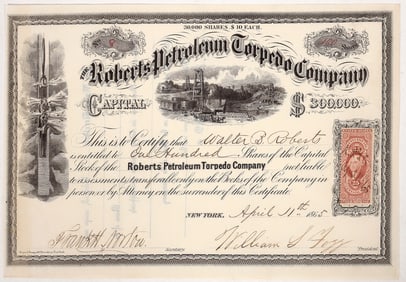 30,000 SHARES $10 EACH.
THE Roberts Petroleum Torpedo Company
CAPITAL $300,000.
This is to Certify that Walter B. Roberts
is entitled to One Hundred Shares of the Capital
Stock of the Roberts Petroleum Torpedo Company not liable
to assessments, transferable only on the Books of the Company in
person or by Attorney on the surrender of this Certificate.
NEW YORK, April 11th 1865
Secretary William S. Fogg President